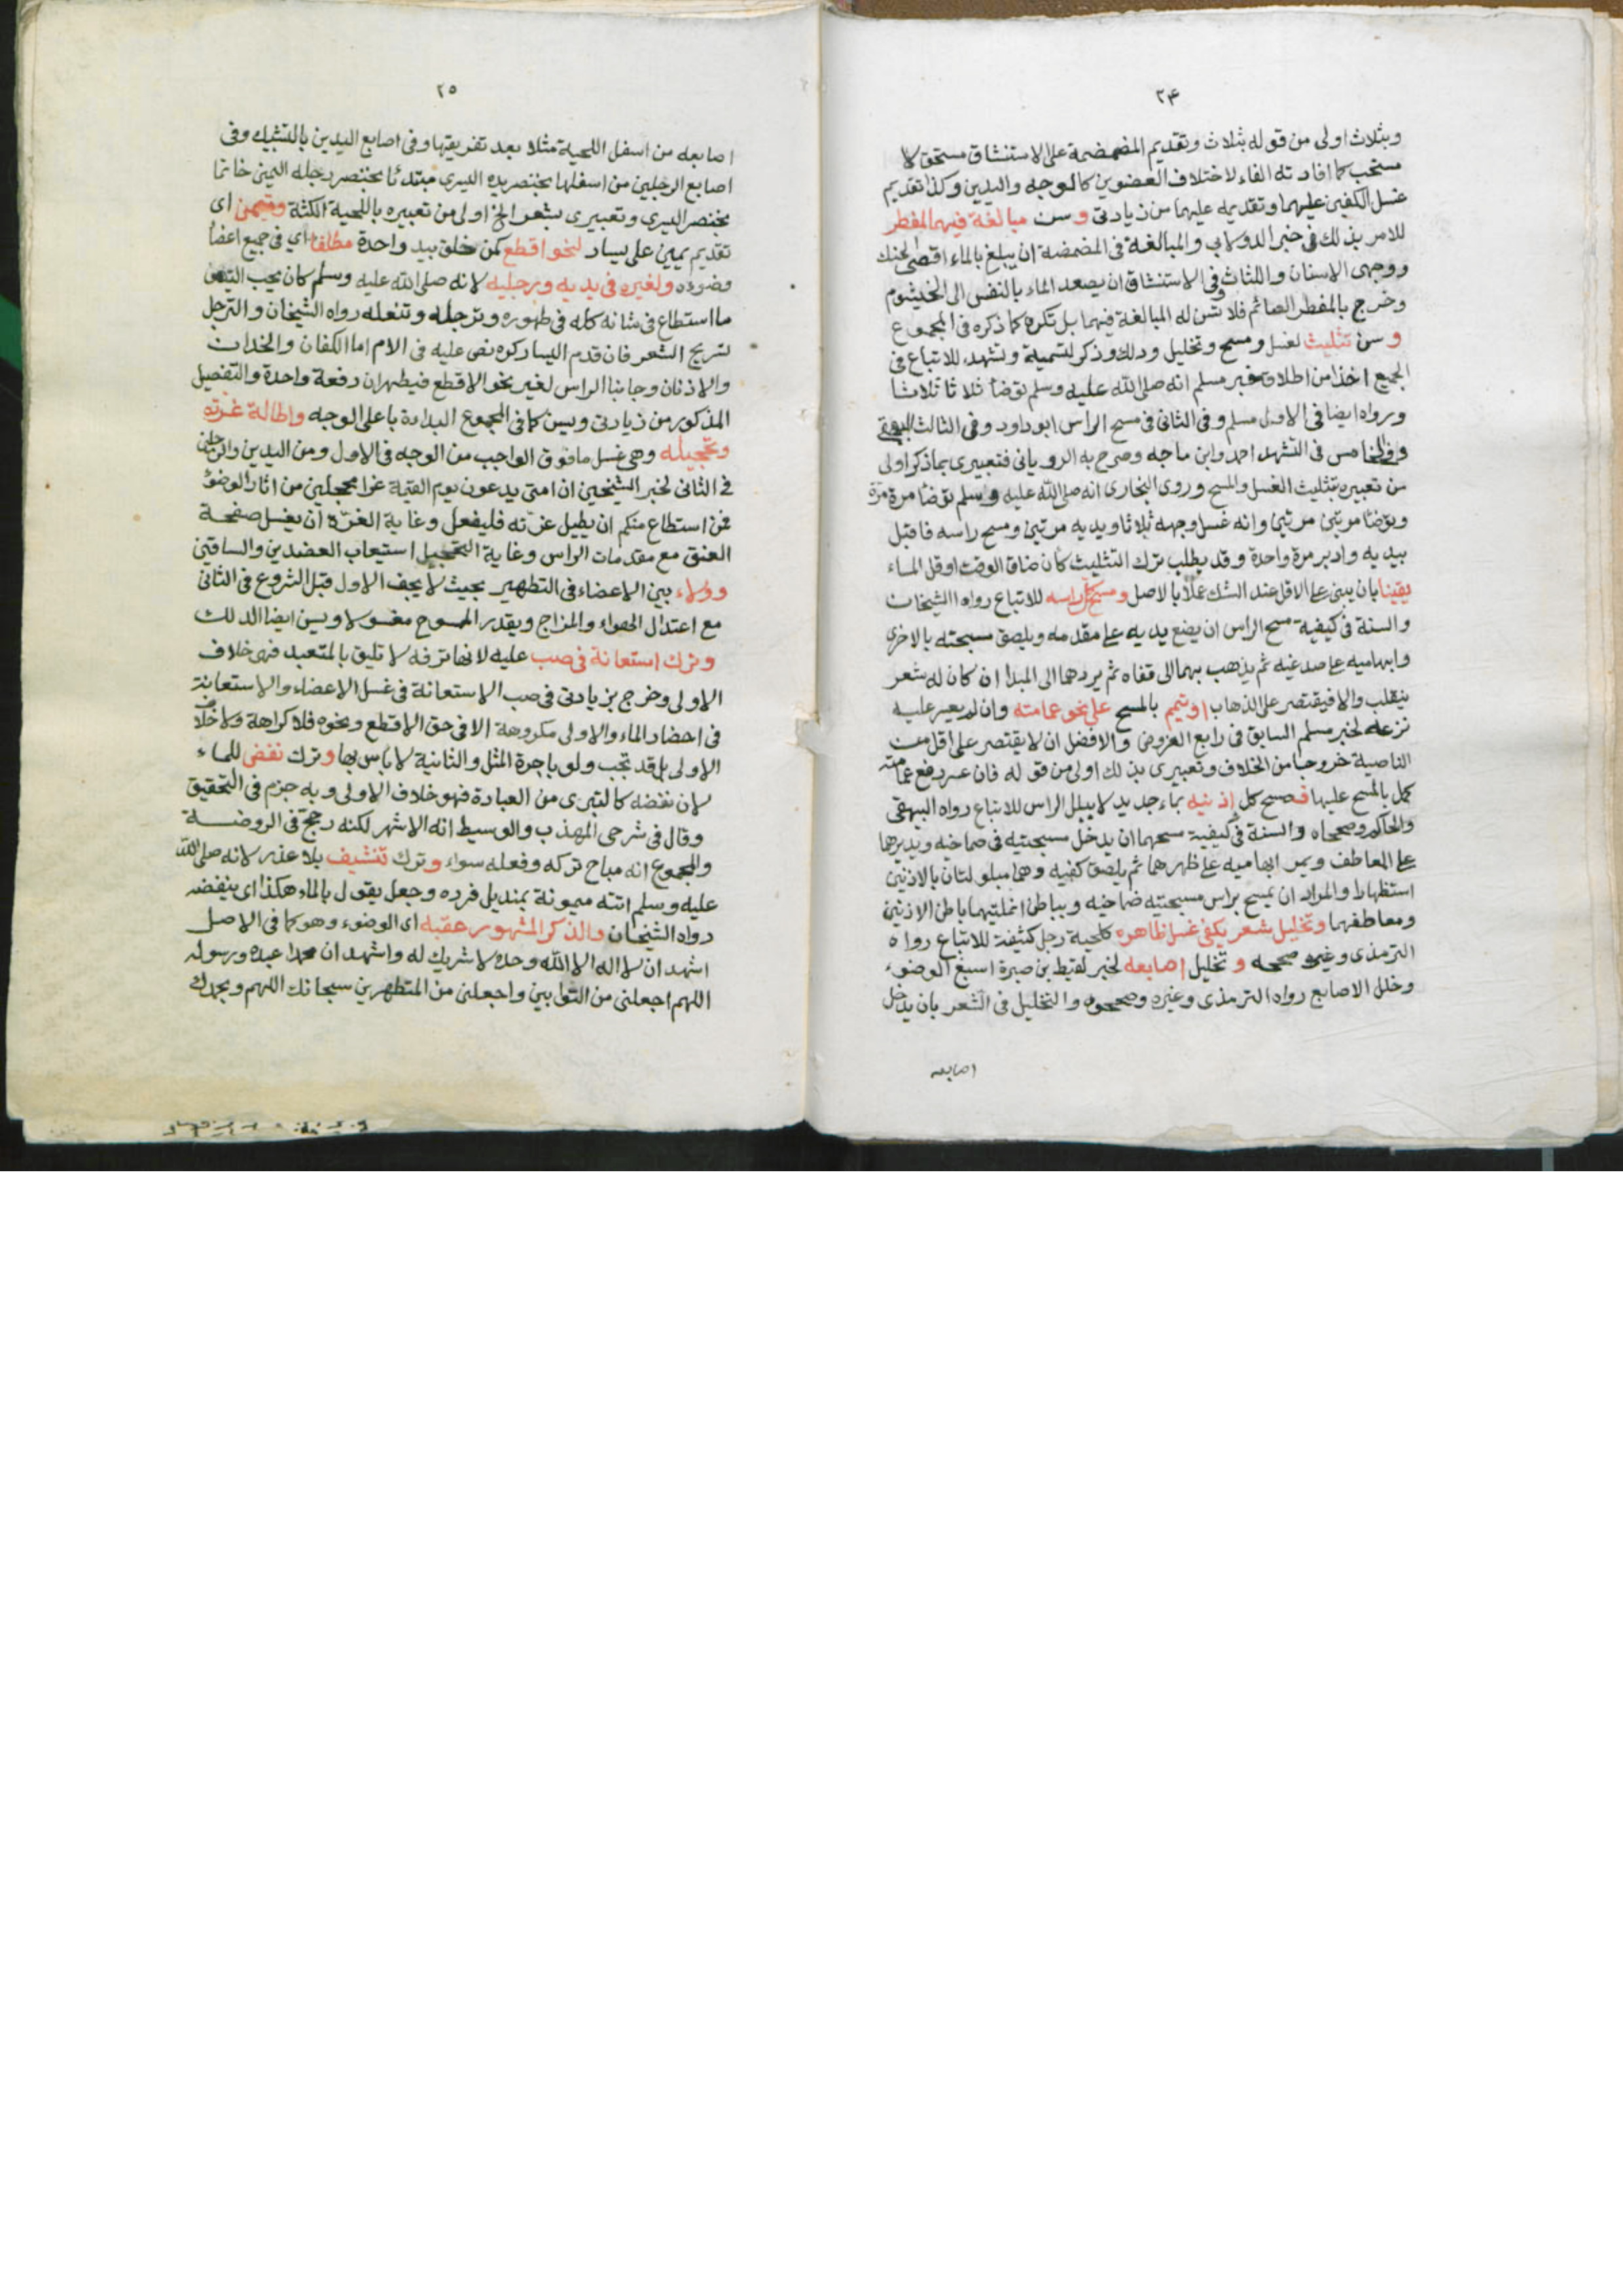 ٢٤
وبثلاث اولى من قوله بثلاث وتقديم المضمضة على الاستنشاق مستحق لا
مستحب كما افادته الفاء لاختلاف العضوين كالوجه واليدين وكذا تقديم
غسل الكفين عليهما وتقديمه عليهما من زيادتى وسن مبالغة فيهما لمفطر
للامر بذلك فى خبر الدولابي والمبالغة فى المضمضة ان يبلغ بالماء اقصى الحنك
ووجهى الاسنان واللثاث وفى الاستنشاق ان يصعد الماء بالنفس الى الخيشوم
وخرج بالمفطر الصائم فلا تسن له المبالغة فيهما بل تكره كما ذكره فى المجموع
و سن تثليث لغسل ومسح وتخليل ودلك وذكر لتسمية وتشهد للاتباع فى
الجميع اخذا من اطلاق خبر مسلم انه صلى الله عليه وسلم توضأ ثلاثا ثلاثا
ورواه ايضا فى الاول مسلم وفى الثانى فى مسح الراس ابوداود وفى الثالث البيهقى
وفى الخامس فى التشهد احمد وابن ماجه وصرح به الرويانى فتعبيرى بما ذكر اولى
من تعبيره بتثليث الغسل والمسح وروى البخارى انه صلى الله عليه وسلم توضأ مرة مرة
وتوضأ مرتين مرتين وانه غسل وجهه ثلاثا ويديه مرتين ومسح راسه فاقبل
بيديه وادبر مرة واحدة وقد يطلب ترك التثليث كأن ضاق الوقت او قل الماء
يقينا بان يبنى على الاقل عند الشك عملا بالاصل ومسح كل راسه للاتباع رواه الشيخان
والسنة فى كيفية مسح الراس ان يضع يديه على مقدمه ويلصق مسبحته بالاخرى
وابهاميه على صدغيه ثم يذهب بهما الى قفاه ثم يردهما الى المبدا ان كان له شعر
ينقلب والا فيقتصر على الذهاب او يتمم بالمسح على نحو عمامته وان لم يعسر عليه
نزعه لخبر مسلم السابق فى رابع الفروض والافضل ان لا يقتصر على اقل من
الناصية خروجا من الخلاف وتعبيرى بذلك اولى من قوله فان عسر رفع عمامته
كمل بالمسح عليها فمسح كل اذنيه بماء جديد لا ببلل الراس للاتباع رواه البيهقى
والحاكم وصححاه والسنة فى كيفية مسحهما ان يدخل مسبحتيه فى صماخيه ويديرهما
على المعاطف ويمر ابهاميه على ظهرهما ثم يلصق كفيه وهما مبلولتان بالاذنين
استظهارا والمراد ان يمسح براس مسبحتيه صماخيه وبباطن انملتيهما باطن الاذنين
ومعاطفهما وتخليل شعر يكفى غسل ظاهره كلحية رجل كثيفة للاتباع رواه
الترمذى وغيره وصححه و تخليل اصابعه لخبر لقيط بن صبرة اسبغ الوضوء
وخلل الاصابع رواه الترمذى وغيره وصححوه والتخليل فى الشعر بان يدخل
اصابعه
٢٥
اصابعه من اسفل اللحية مثلا بعد تفريقها وفى اصابع اليدين بالتشبيك وفى
اصابع الرجلين من اسفلها بخنصر يده اليسرى مبتدئا بخنصر رجله اليمنى خاتما
بخنصر اليسرى وتعبيرى بشعر الخ اولى من تعبيره باللحية الكثة وتيمن اى
تقديم يمين على يسار لنحو اقطع كمن خلق بيد واحدة مطلقا اي فى جميع اعضا
وضوءه ولغيره فى يديه ورجليه لانه صلى الله عليه وسلم كان يحب التيمن
ما استطاع فى شانه كله فى طهوره وترجله وتنعله رواه الشيخان والترجل
تسريح الشعر فان قدم اليسار كره نص عليه فى الام اما الكفان والخدان
والاذنان وجانبا الراس لغير نحو الاقطع فيطهران دفعة واحدة والتفصيل
المذكور من زيادتى ويسن كما فى المجموع البداءة باعلى الوجه واطالة غرته
وتحجيله وهى غسل ما فوق الواجب من الوجه فى الاول ومن اليدين والرجلين
فى الثانى لخبر الشيخين ان امتى يدعون يوم القيمة غرا محجلين من اثار الوضوء
فمن استطاع منكم ان يطيل غرته فليفعل وغاية الغرة ان يغسل صفحة
العنق مع مقدمات الراس وغاية التحجيل استيعاب العضدين والساقين
وولاء بين الاعضاء فى التطهير بحيث لا يجف الاول قبل الشروع فى الثانى
مع اعتدال الهواء والمزاج ويقدر الممسوح مغسولا ويسن ايضا الدلك
وترك استعانة فى صب عليه لانها ترفه لا تليق بالمتعبد فهى خلاف
الاولى وخرج بزيادتى فى صب الاستعانة فى غسل الاعضاء والاستعانة
فى احضار الماء والاولى مكروهة الا فى حق الاقطع ونحوه فلا كراهة ولا خلاف
الاولى بل قد تجب ولو باجرة المثل والثانية لا باس بها وترك نفض للماء
لان نفضه كالتبرى من العبادة فهو خلاف الاولى وبه جزم فى التحقيق
وقال فى شرحى المهذب والوسيط انه الاشهر لكنه رجح فى الروضة
والمجموع انه مباح تركه وفعله سواء وترك تنشيف بلا عذر لانه صلى الله
عليه وسلم اتته ميمونة بمنديل فرده وجعل يقول بالماء هكذا اى ينفضه
رواه الشيخان والذكر المشهور عقبه اى الوضوء وهو كما فى الاصل
اشهد ان لا اله الا الله وحده لا شريك له واشهد ان محمدا عبده ورسوله
اللهم اجعلنى من التوابين واجعلنى من المتطهرين سبحانك اللهم وبحمدك